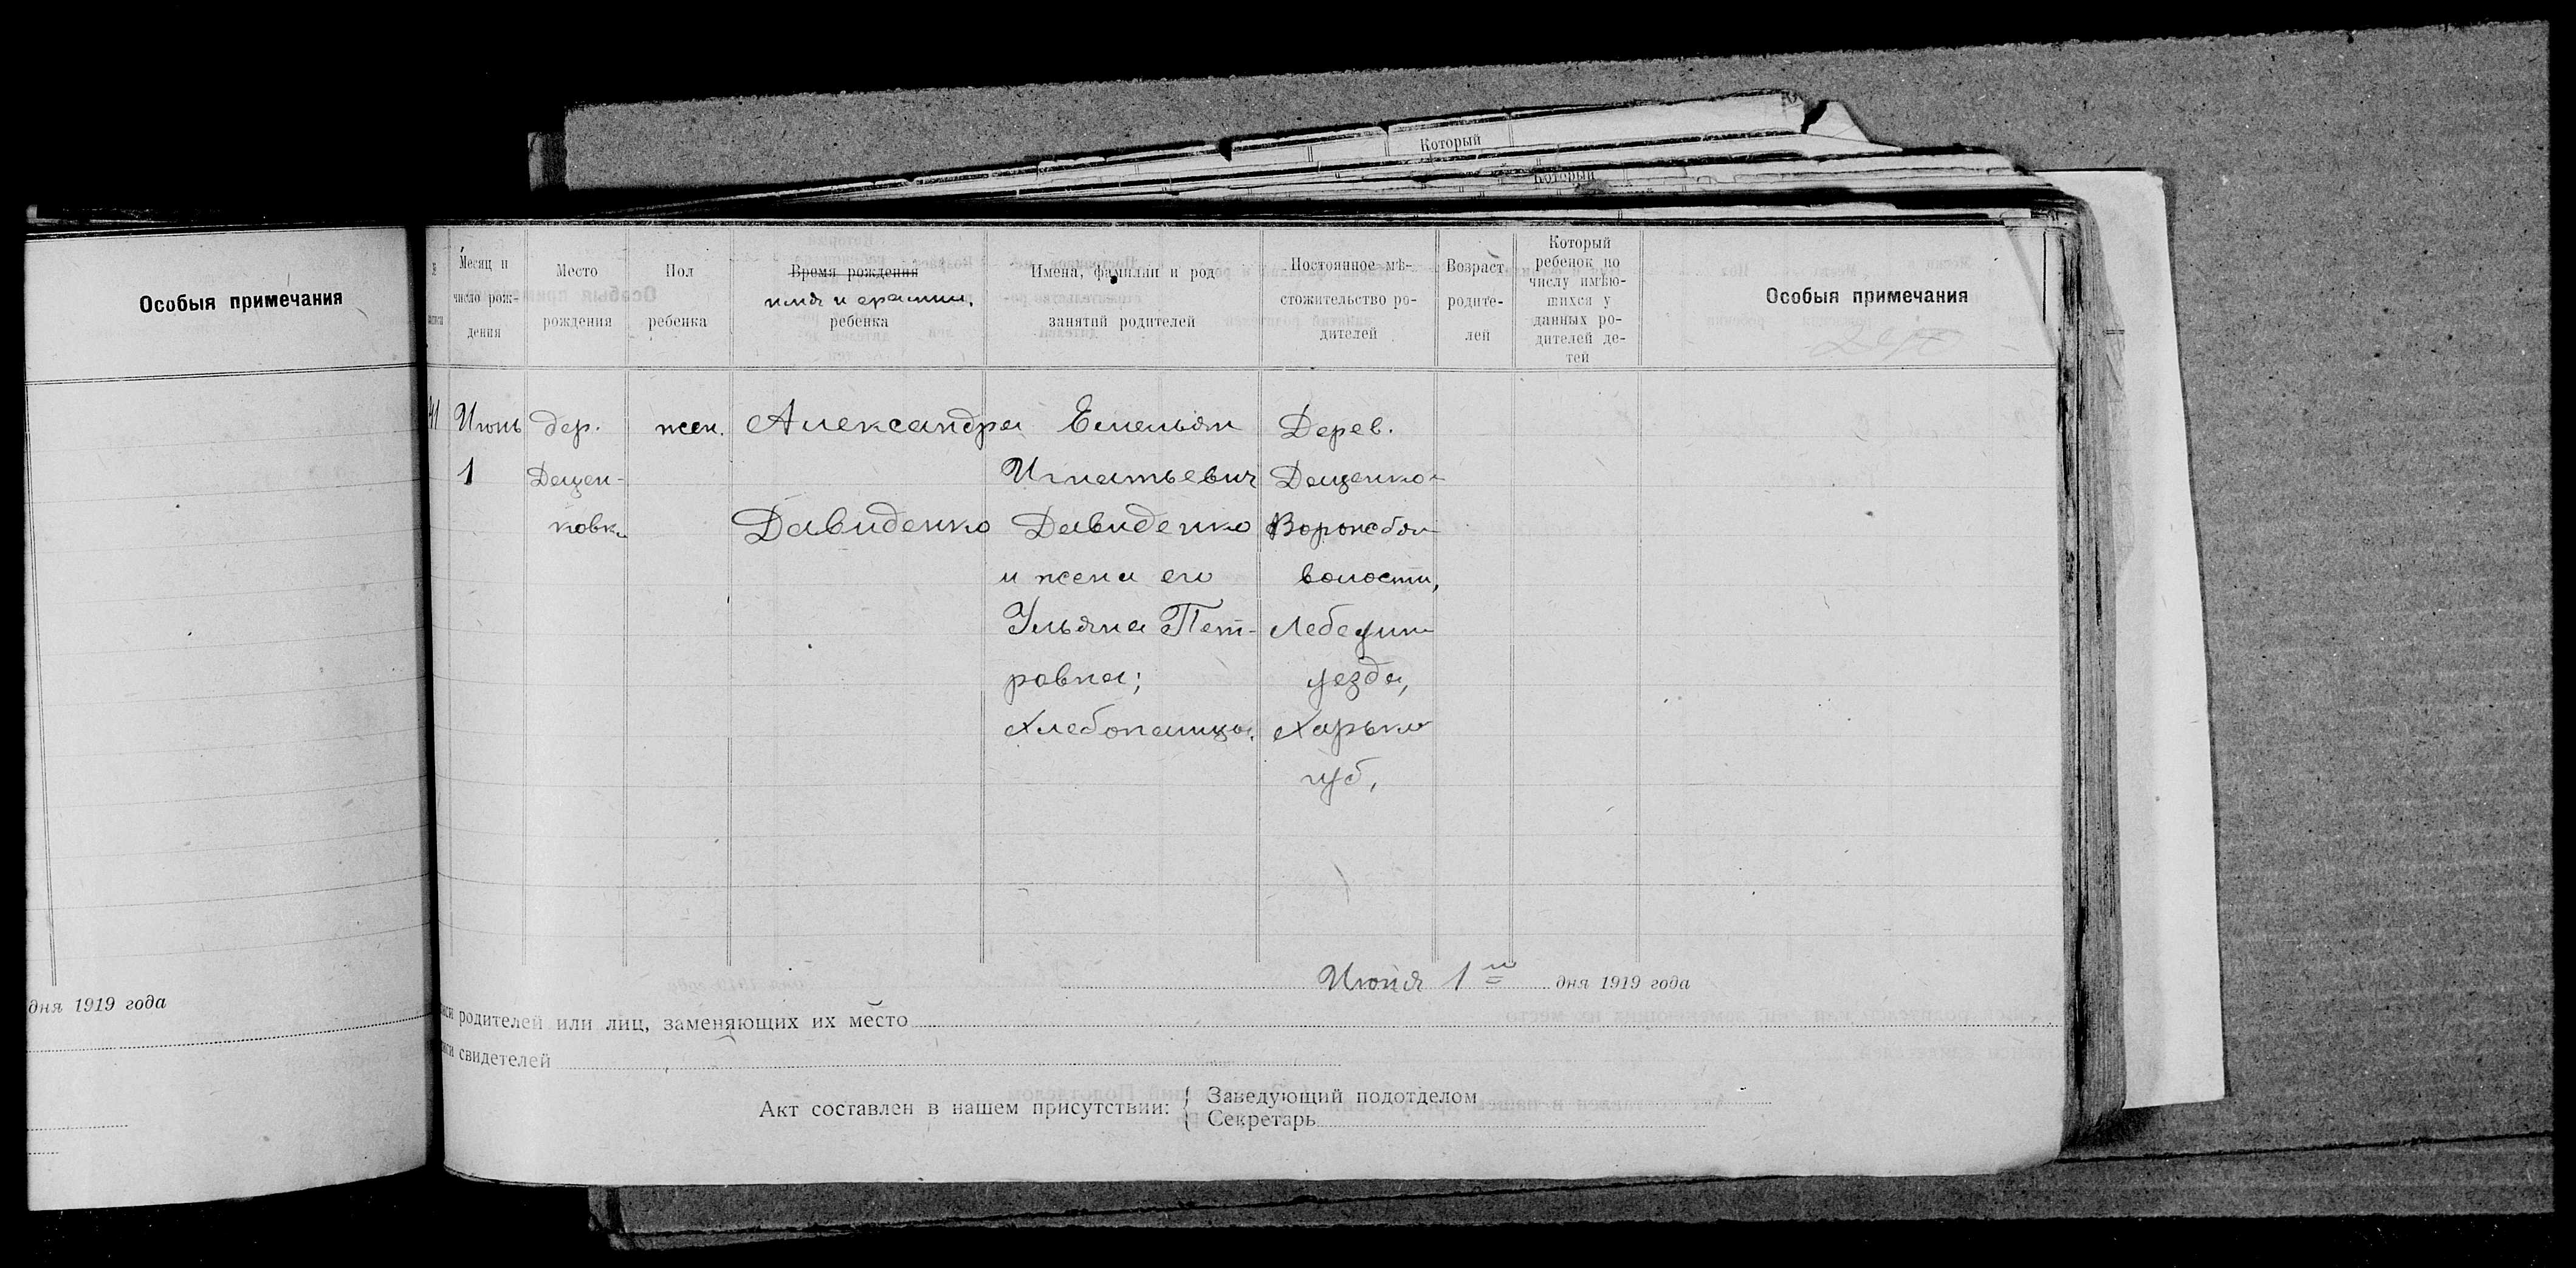 Который
Который
Особыя примечания
дня 1919 года
№
Месяц и число рождения
Место рождения
Пол ребенка
Время рождения
имя и фамил.
ребенка
Имена, фамилии и род занятий родителей
Постоянное мѣстожительство родителей
Возраст родителей
Который ребенок по числу имѣющихся у данных родителей детей
Особыя примечания
Июнь дер. жен. Александра Емельян Дерев.
1 Дащен- Игнатьевич Дащенко-
ковка Давиденко Давиденко Ворожбян
и жена его волости,
Ульяна Пет- Лебедин
ровна; уезда,
хлебопашцы. Харьков
губ.
Июня 1го дня 1919 года
родителей или лиц, заменяющих их место
свидетелей
Акт составлен в нашем присутствии: { Заведующий подотделом
Секретарь